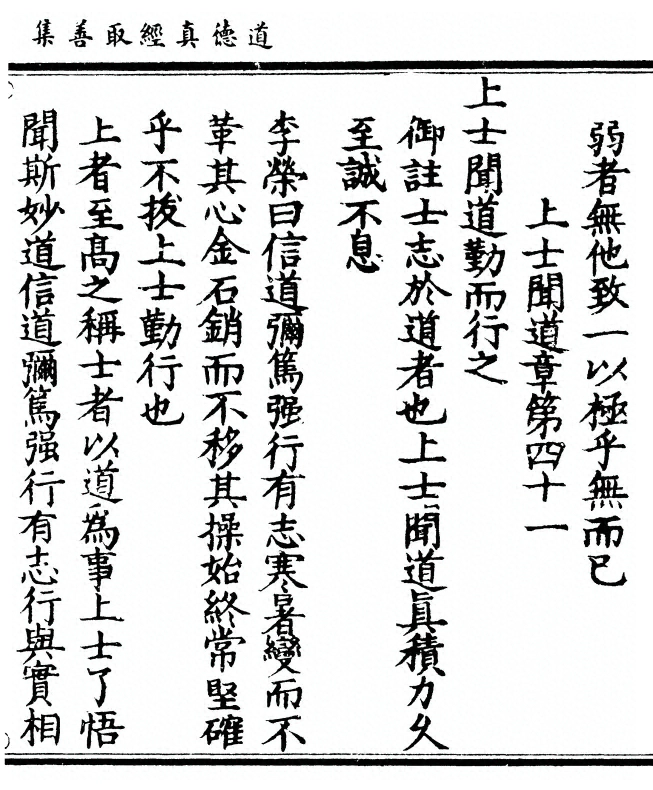 道德真經取善集
弱者無他致一以極乎無而已
上士聞道章第四十一
上士聞道勤而行之
御註士志於道者也上士聞道真積力久
至誠不息
李榮曰信道彌篤强行有志寒暑變而不
革其心金石銷而不移其操始終常堅確
乎不拔上士勤行也
上者至高之稱士者以道為事上士了悟
聞斯妙道信道彌篤强行有志行與實相